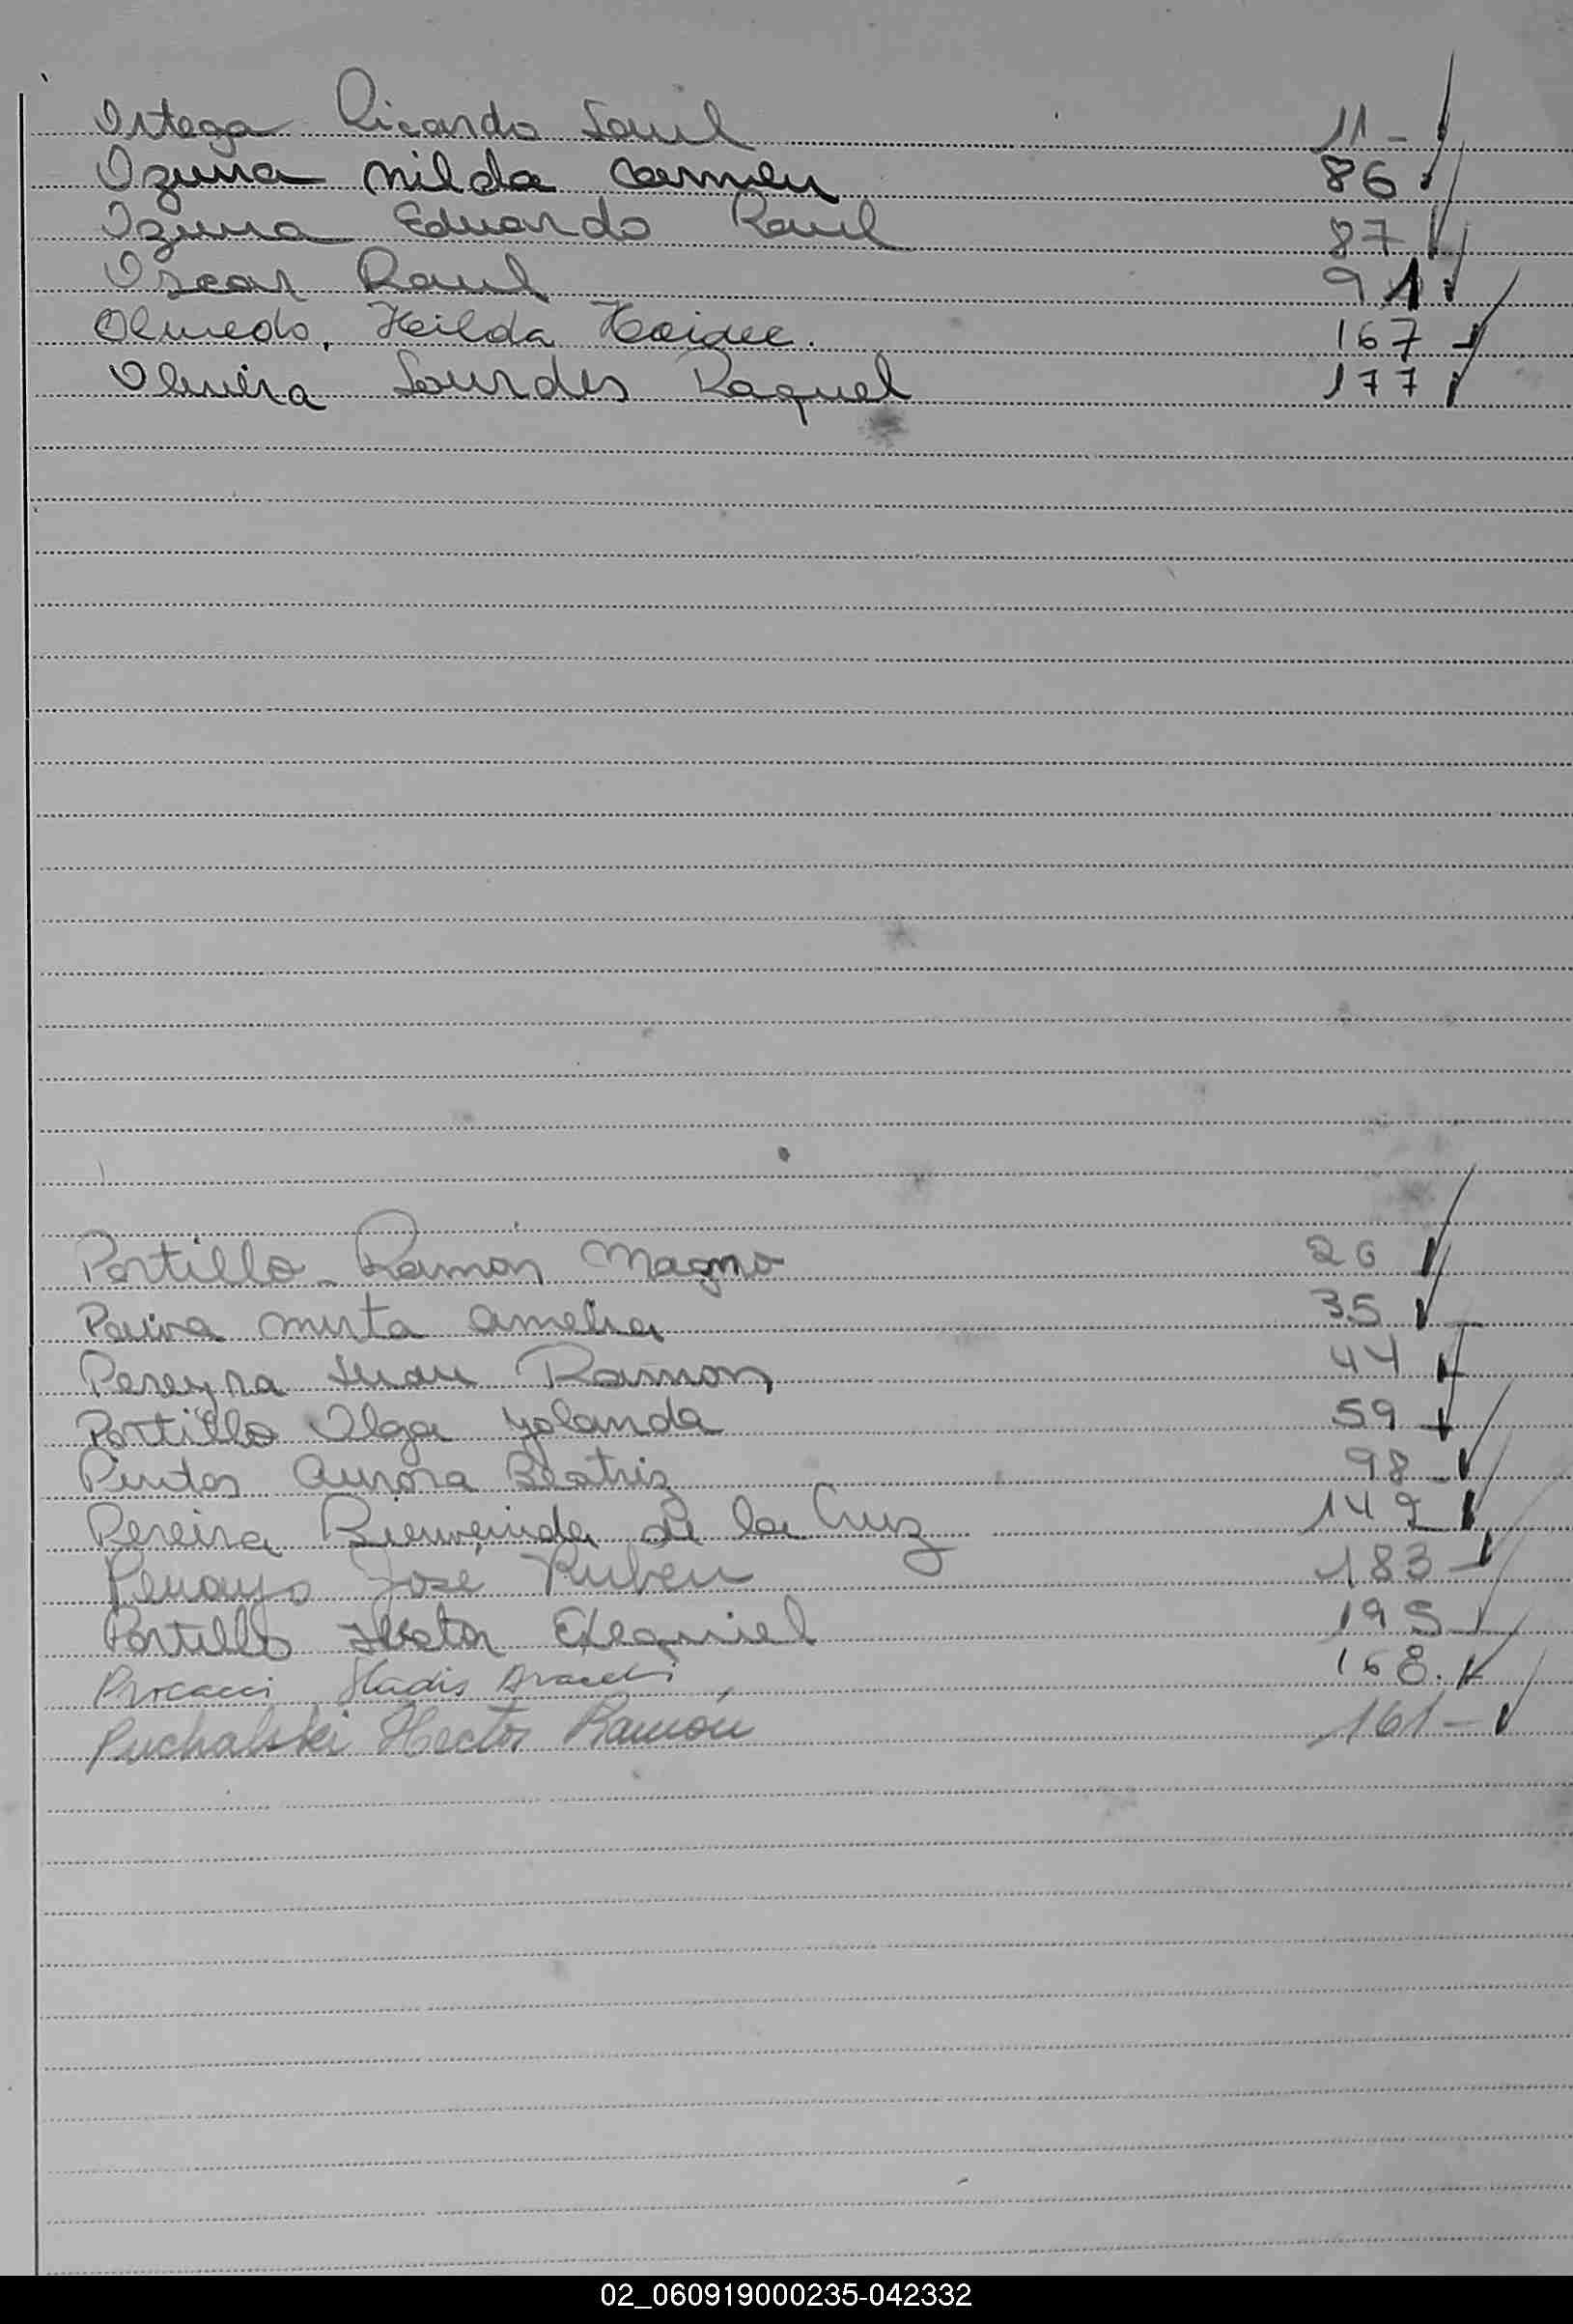 Ortega Ricardo Saul 11 -
Ozuna Nilda Carmen 86
Ozuna Eduardo Raul 87
Oscar Raul 91
Olmedo, Hilda Haidee. 167
Oliveira Lourdes Raquel 177
Portillo - Ramón Magno 26
Paiva Mirta Amelia 35
Pereyra Juan Ramon 44
Portillo Olga Yolanda 59
Pintos Aurora Beatriz 98 -
Pereira Bienvenida de la Cruz 149
Penayo José Rubén 183 -
Portillo Hector Exequiel 195
Procacci Gladis Araceli 168.
Puchalski Hector Ramón 161 -
02_060919000235-042332